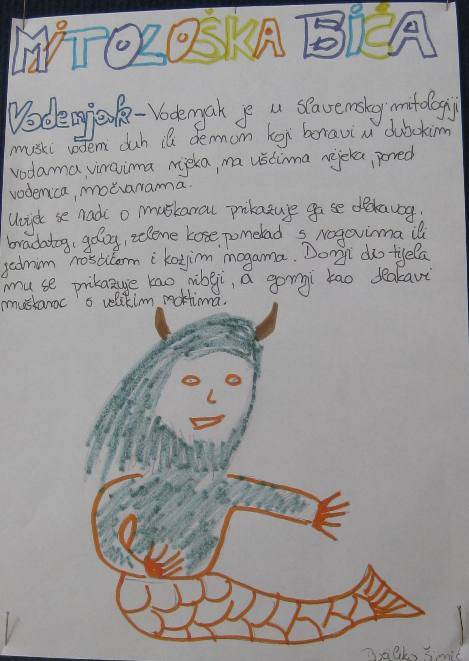 MITOLOŠKA BIĆA
Vodenjak - Vodenjak je u slavenskoj mitologiji
muški vodeni duh ili demon koji boravi u dubokim
vodama, virovima rijeka, na ušćima rijeka, pored
vodenica, močvarama.
Uvijek se radi o muškarcu prikazuje ga se dlakavog,
bradatog, golog, zelene kose, ponekad s rogovima ili
jednim rošćićem i kozjim nogama. Donji dio tijela
mu se prikazuje kao riblji, a gornji kao dlakavi
muškarac s velikim noktima.
Šimić